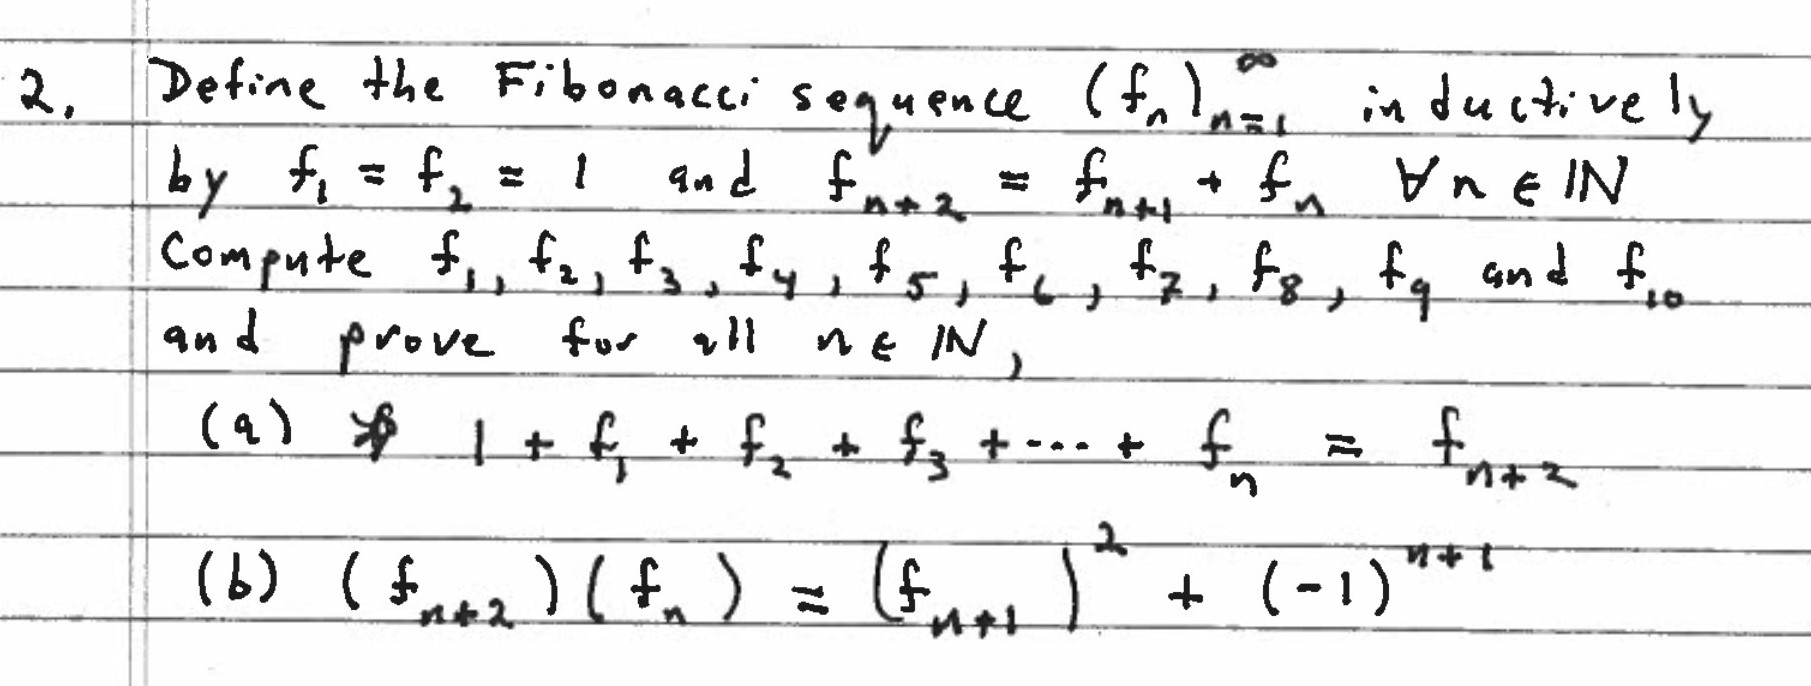 2. Define the Fibonacci sequence (fₙ)ₙ₌₁^∞ inductively
by f₁ = f₂ = 1 and fₙ₊₂ = fₙ₊₁ + fₙ ∀n ∈ ℕ
Compute f₁, f₂, f₃, f₄, f₅, f₆, f₇, f₈, f₉ and f₁₀
and prove for all n ∈ ℕ,
(a) 1 + f₁ + f₂ + f₃ + ... + fₙ = fₙ₊₂
(b) (fₙ₊₂)(fₙ) = (fₙ₊₁)² + (-1)ⁿ⁺¹